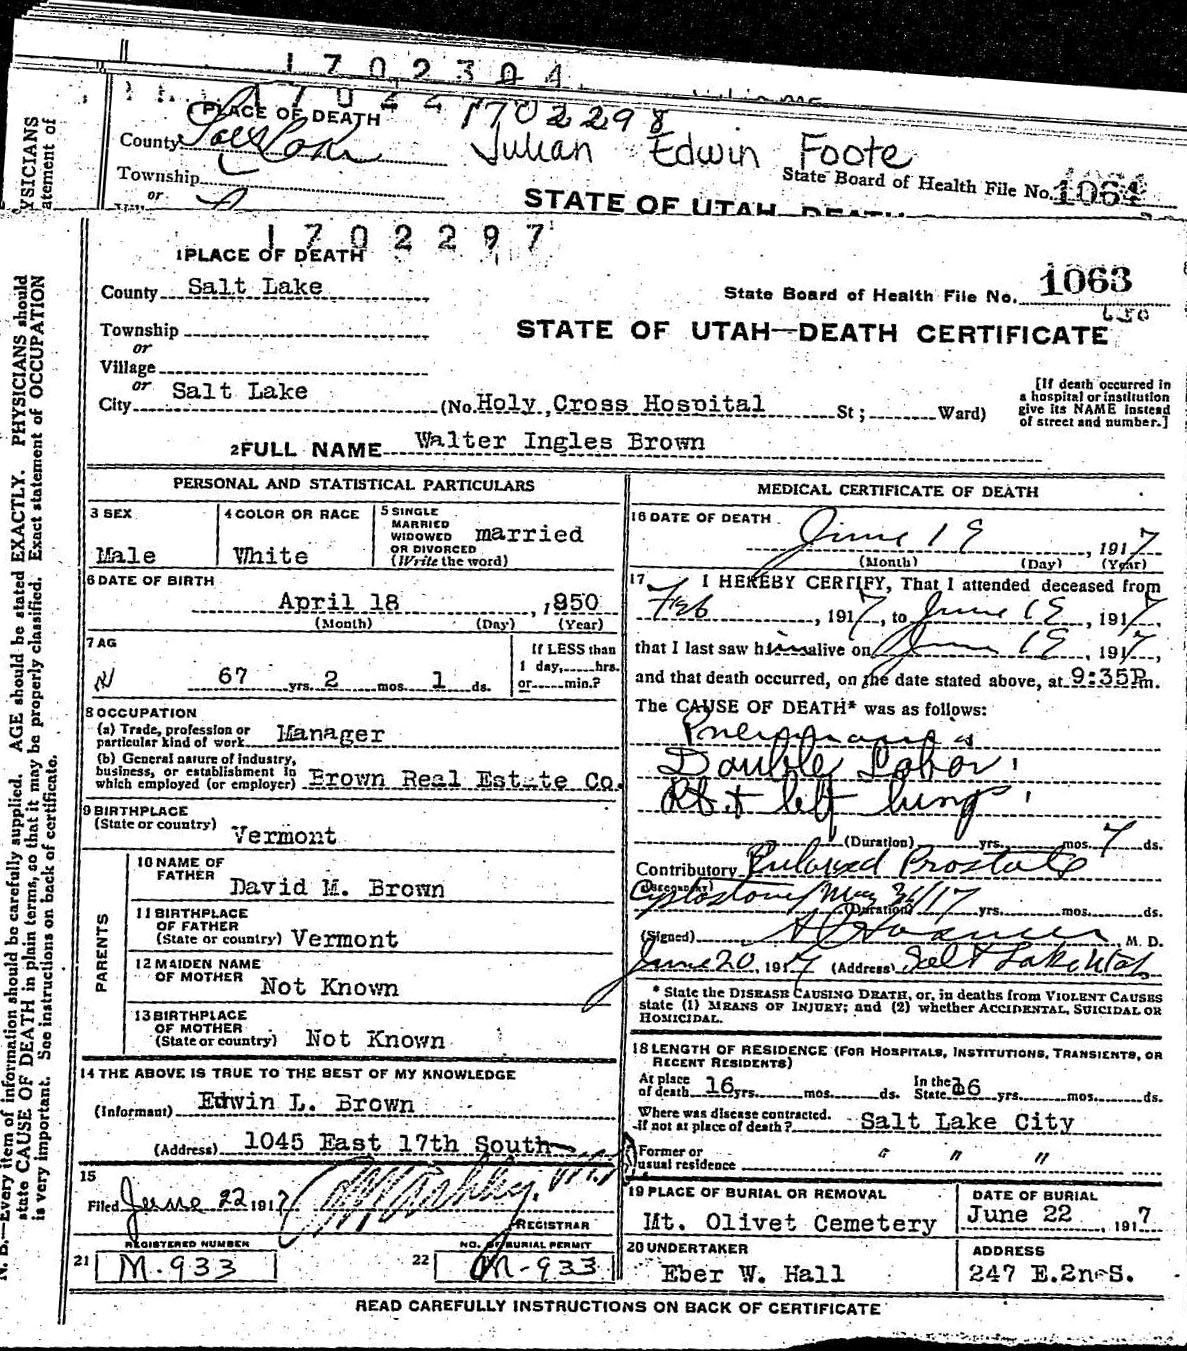 1702304
17044
1702298
PLACE OF DEATH
County Salt Lake
Julian Edwin Foote
Township
or
State Board of Health File No. 1064
STATE OF UTAH—DEATH
YSICIANS
atement of
1702297
1 PLACE OF DEATH
County Salt Lake
State Board of Health File No. 1063
Township
STATE OF UTAH—DEATH CERTIFICATE
or
Village
or
City Salt Lake (No. Holy Cross Hospital St; Ward)
[If death occurred in
a hospital or institution
give its NAME instead
of street and number.]
2 FULL NAME Walter Ingles Brown
PERSONAL AND STATISTICAL PARTICULARS
3 SEX
Male
4 COLOR OR RACE
White
5 SINGLE
MARRIED
WIDOWED
OR DIVORCED
(Write the word)
married
6 DATE OF BIRTH
April 18, 1850
(Month) (Day) (Year)
7 AG
67 yrs. 2 mos. 1 ds.
If LESS than
1 day, hrs.
or min.?
8 OCCUPATION
(a) Trade, profession or
particular kind of work Manager
(b) General nature of industry,
business, or establishment in
which employed (or employer) Brown Real Estate Co.
9 BIRTHPLACE
(State or country) Vermont
PARENTS
10 NAME OF
FATHER David M. Brown
11 BIRTHPLACE
OF FATHER
(State or country) Vermont
12 MAIDEN NAME
OF MOTHER Not Known
13 BIRTHPLACE
OF MOTHER
(State or country) Not Known
14 THE ABOVE IS TRUE TO THE BEST OF MY KNOWLEDGE
(Informant) Edwin L. Brown
(Address) 1045 East 17th South
15
Filed June 22 1917
REGISTRAR
REGISTERED NUMBER
21 M-933
NO. OF BURIAL PERMIT
22 M-933
MEDICAL CERTIFICATE OF DEATH
16 DATE OF DEATH
June 19, 1917
(Month) (Day) (Year)
17 I HEREBY CERTIFY, That I attended deceased from
Feb, 1917, to June 19, 1917,
that I last saw him alive on June 19, 1917,
and that death occurred, on the date stated above, at 9:35P.m.
The CAUSE OF DEATH* was as follows:
Pneumonia
Double Lobar
Rt & left lung
(Duration) yrs. mos. 7 ds.
Contributory Enlarged Prostate
(SECONDARY)
Cystostomy May 31/17
(Duration) yrs. mos. ds.
(Signed) M. D.
June 20, 1917 (Address) Salt Lake Utah
* State the DISEASE CAUSING DEATH, or, in deaths from VIOLENT CAUSES
state (1) MEANS OF INJURY; and (2) whether ACCIDENTAL, SUICIDAL OR
HOMICIDAL.
18 LENGTH OF RESIDENCE (FOR HOSPITALS, INSTITUTIONS, TRANSIENTS, OR
RECENT RESIDENTS)
At place
of death 16 yrs. mos. ds.
In the
State 16 yrs. mos. ds.
Where was disease contracted.
if not at place of death? Salt Lake City
Former or
usual residence " " "
19 PLACE OF BURIAL OR REMOVAL
Mt. Olivet Cemetery
DATE OF BURIAL
June 22, 1917
20 UNDERTAKER
Eber W. Hall
ADDRESS
247 E.2nd S.
READ CAREFULLY INSTRUCTIONS ON BACK OF CERTIFICATE
N. B.—Every item of information should be carefully supplied. AGE should be stated EXACTLY. PHYSICIANS should
state CAUSE OF DEATH in plain terms, so that it may be properly classified. Exact statement of OCCUPATION
is very important. See instructions on back of certificate.